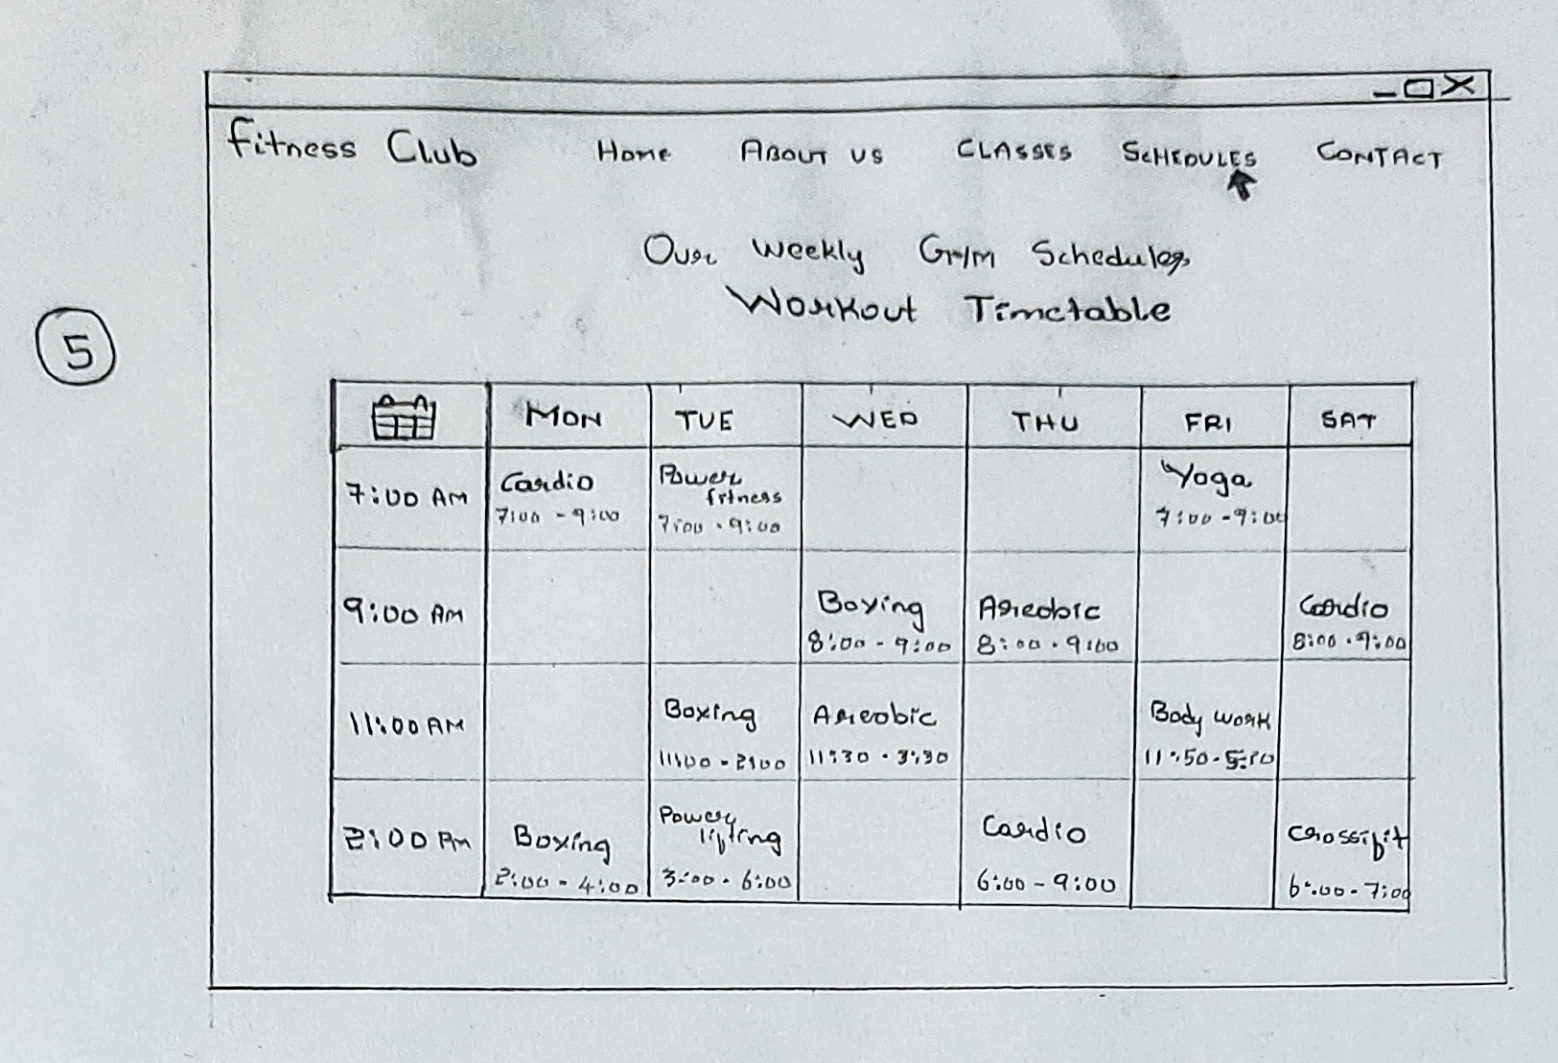 Fitness Club Home ABOUT US CLASSES SCHEDULES CONTACT
Our Weekly GYM Schedules
Workout Timetable
5
MON TUE WED THU FRI SAT
7:00 AM
Cardio
7:00 - 9:00
Power
fitness
7:00 - 9:00
Yoga
7:00 - 9:00
9:00 AM
Boxing
8:00 - 9:00
Areobic
8:00 - 9:00
Cardio
8:00 - 9:00
11:00 AM
Boxing
11:00 - 2:00
Areobic
11:30 - 3:30
Body work
11:50 -
2:00 PM
Boxing
2:00 - 4:00
Power
lifting
3:00 - 6:00
Cardio
6:00 - 9:00
Crossifit
6:00 - 7:00